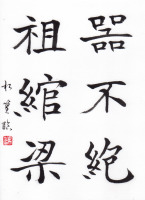 器不絶
祖綰梁